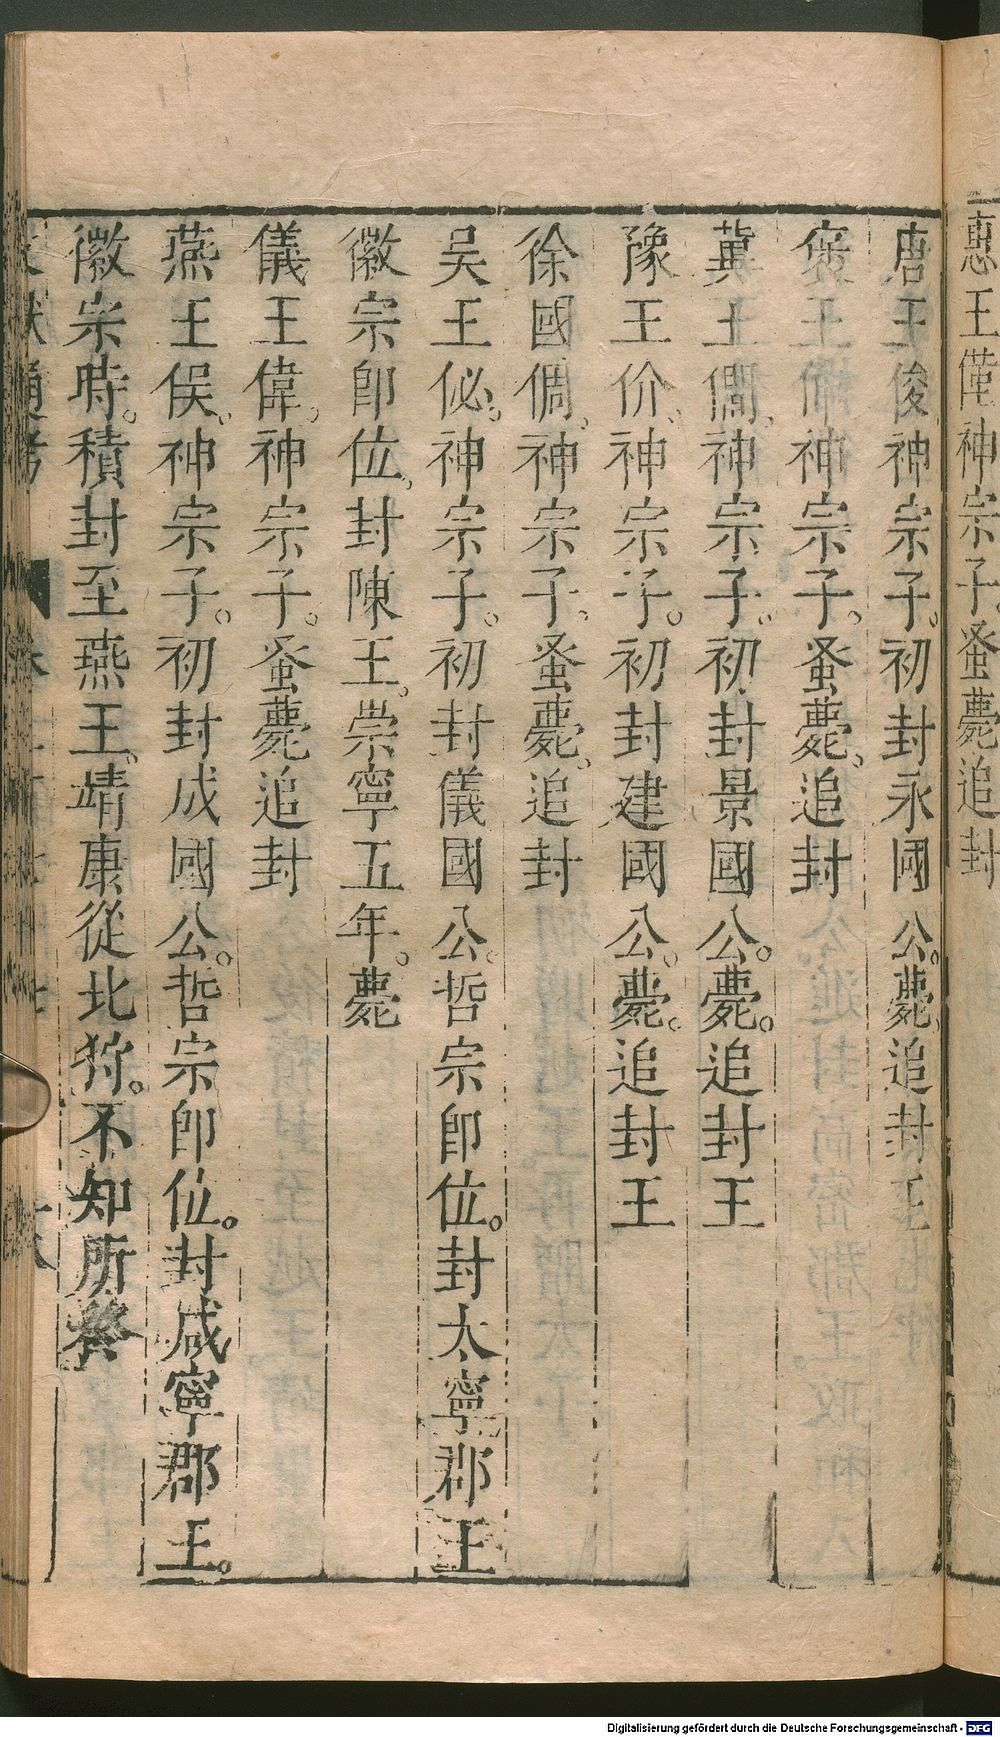 惠王僅神宗子。蚤薨追封
唐王俊神宗子。初封永國公。薨。追封王
褒王伸神宗子。蚤薨。追封
冀王僩、神宗子。初封景國公。薨。追封王
豫王价、神宗子。初封建國公。薨。追封王
徐國倜、神宗子。蚤薨。追封
吳王佖。神宗子。初封儀國公。哲宗即位。封太寧郡王
徽宗即位、封陳王。崇寧五年。薨
儀王偉。神宗子。蚤薨追封
燕王俁、神宗子。初封成國公。哲宗即位。封咸寧郡王。
徽宗時。積封至燕王。靖康從北狩。不知所終
Digitalisierung gefördert durch die Deutsche Forschungsgemeinschaft - DFG